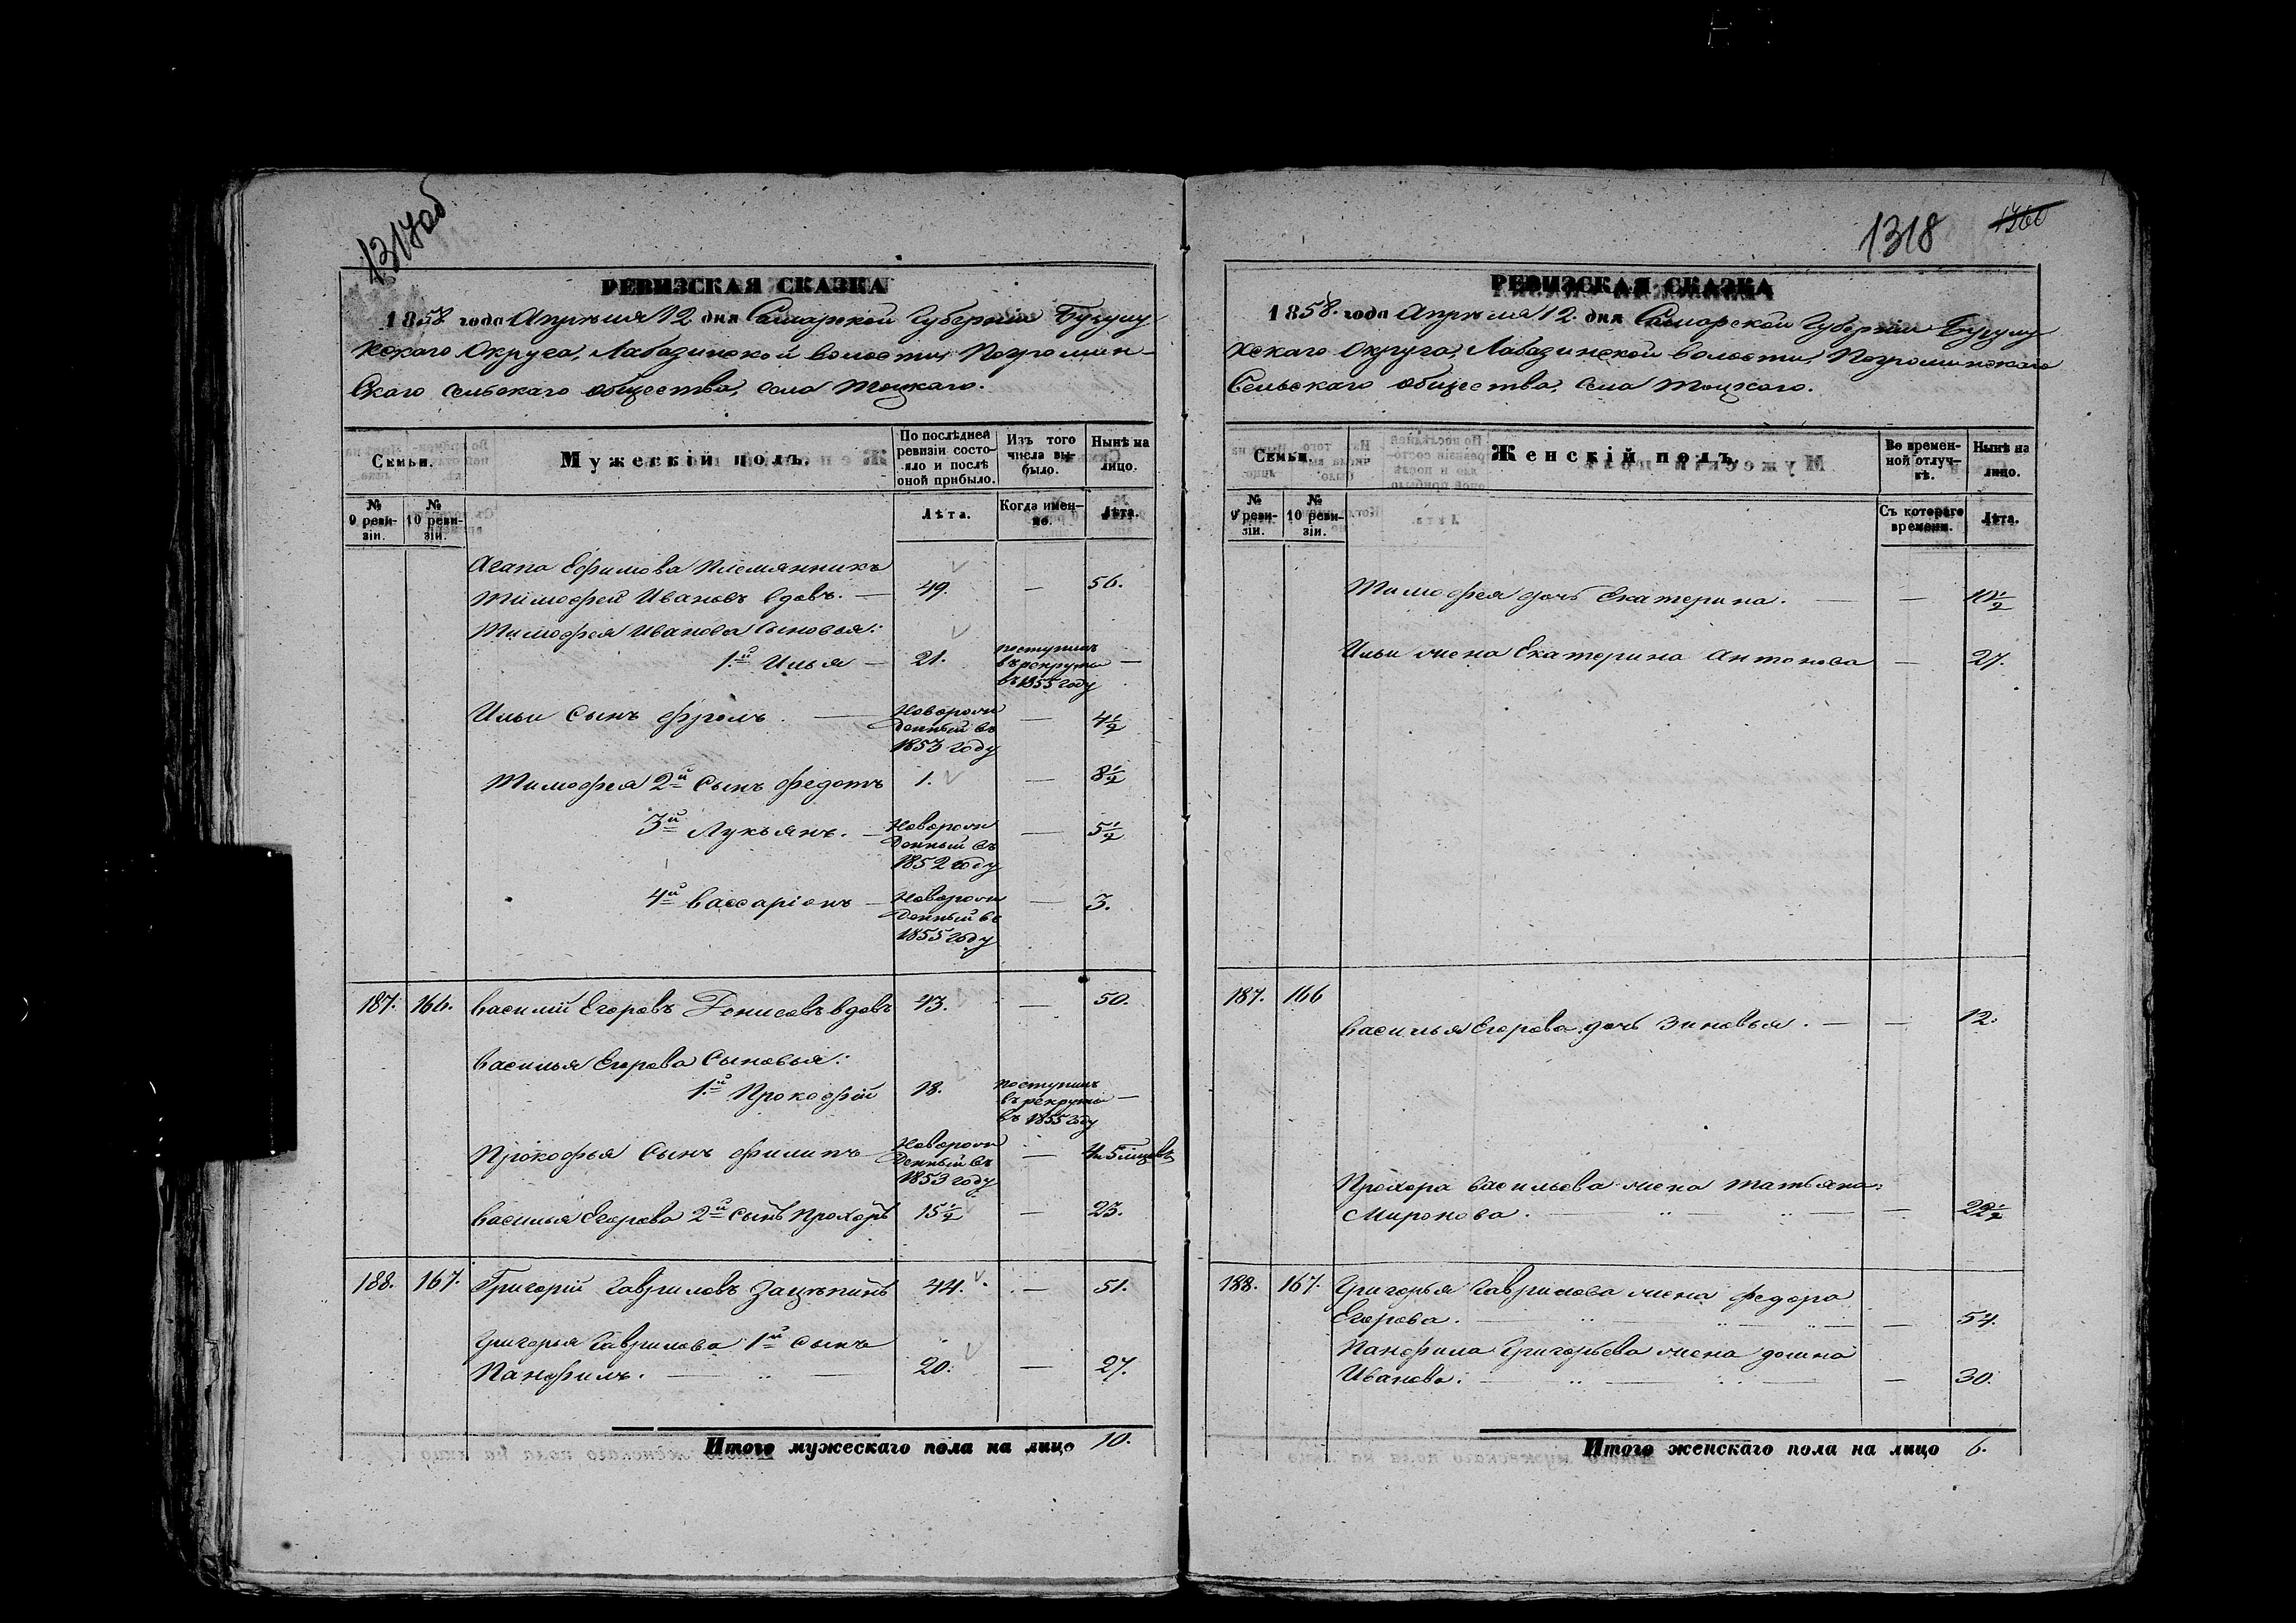 1317об
РЕВИЗСКАЯ СКАЗКА
1858 года Апрѣля 12 дня Самарской Губерніи Бузулу
кскаго Округа, Лабазинской волости, Погромин-
скаго сельскаго общества, села Тоцкаго.
Семьи.
Мужескій полъ.
По послѣдней ревизіи состояло и послѣ оной прибыло.
Изъ того числа выбыло.
Нынѣ на лицо.
№ 9 ревизіи.
№ 10 ревизіи.
Лѣта.
Когда именно.
Лѣта.
Агапа Ефимова племянникъ
Тимофей Ивановъ вдовъ. — 49. — 56.
Тимофея Иванова сыновья:
1й Илья — 21. поступилъ въ рекруты въ 1855 году —
Ильи сынъ Фролъ. — Новорожденный въ 1853 году — 4½
Тимофея 2й сынъ Федотъ 1. — 8½
3й Лукьянъ. — Новорожденный въ 1852 году — 5½
4й Вассаріонъ — Новорожденный въ 1855 году — 3.
187. 166. Василій Егоровъ Денисовъ вдовъ 43. — 50.
Василья Егорова сыновья:
1й Прокофій 18. поступилъ въ рекруты въ 1855 году —
Прокофья сынъ Филипъ Новорожденный въ 1853 году — 4 и 5 мѣсяцевъ
Василья Егорова 2й сынъ Прохоръ 15½ — 23.
188. 167. Григорій Гавриловъ Зацѣпинъ 44. — 51.
Григорья Гаврилова 1й сынъ
Панфилъ. — 20. — 27.
Итого мужескаго пола на лицо 10.
1318
1360
РЕВИЗСКАЯ СКАЗКА
1858. года Апрѣля 12. дня Самарской Губерніи Бузулу
кскаго Округа, Лабазинской волости, Погроминскаго
Сельскаго общества, села Тоцкаго.
Семьи.
Женскій полъ.
Во временной отлучкѣ.
Нынѣ на лицо.
№ 9 ревизіи.
№ 10 ревизіи.
Съ котораго времени.
Лѣта.
Тимофея дочь Екатерина. — — 10½
Ильи жена Екатерина Антонова — 27.
187. 166
Василья Егорова дочь Зиновья. — — 12.
Прохора Васильева жена Татьяна
Миронова. — — 22½
188. 167. Григорья Гаврилова жена Федора
Егорова. — — 54.
Панфила Григорьева жена Домна
Иванова. — — 30.
Итого женскаго пола на лицо 6.